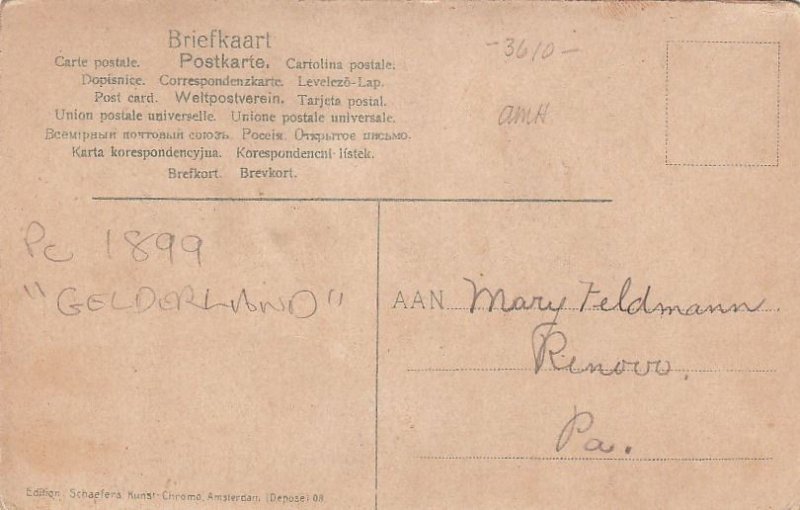 Briefkaart
Carte postale. Postkarte. Cartolina postale.
Dopisnice. Correspondenzkarte. Levelezö-Lap.
Post card. Weltpostverein. Tarjeta postal.
Union postale universelle. Unione postale universale.
Всемірный почтовый союзъ. Россія. Открытое письмо.
Karta korespondencyjna. Korespondencni-listek.
Brefkort. Brevkort.
-3610-
amH
Pc 1899
"GELDERLAND"
AAN Mary Feldmann
Renovo.
Pa.
Edition Schaefers Kunst-Chromo, Amsterdam. (Deposé) 08